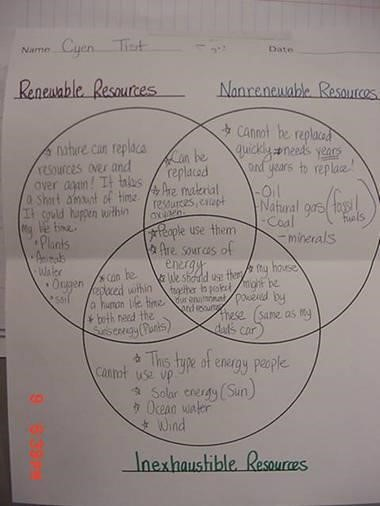 Name Cyen Tist
Date
Renewable Resources
Nonrenewable Resources
☆ nature can replace
resources over and
over again! It takes
a short amount of time.
It could happen within
my life time.
• Plants
• Animals
• Water
• Oxygen
• soil
☆ Can be
replaced
☆ Are material
resources, except
oxygen.
☆ Cannot be replaced
quickly → needs years
and years to replace!
- Oil
- Natural gas (fossil
fuels)
- Coal
- minerals
☆ People use them
☆ Are sources of
energy
☆ We should use them
together to protect
our environment
and resources
☆ can be
replaced within
a human life time
☆ both need the
sun's energy (Plants)
☆ my house
might be
powered by
these (same as my
dad's car)
☆ This type of energy people
cannot use up.
☆ Solar energy (Sun)
☆ Ocean water
☆ Wind
Inexhaustible Resources